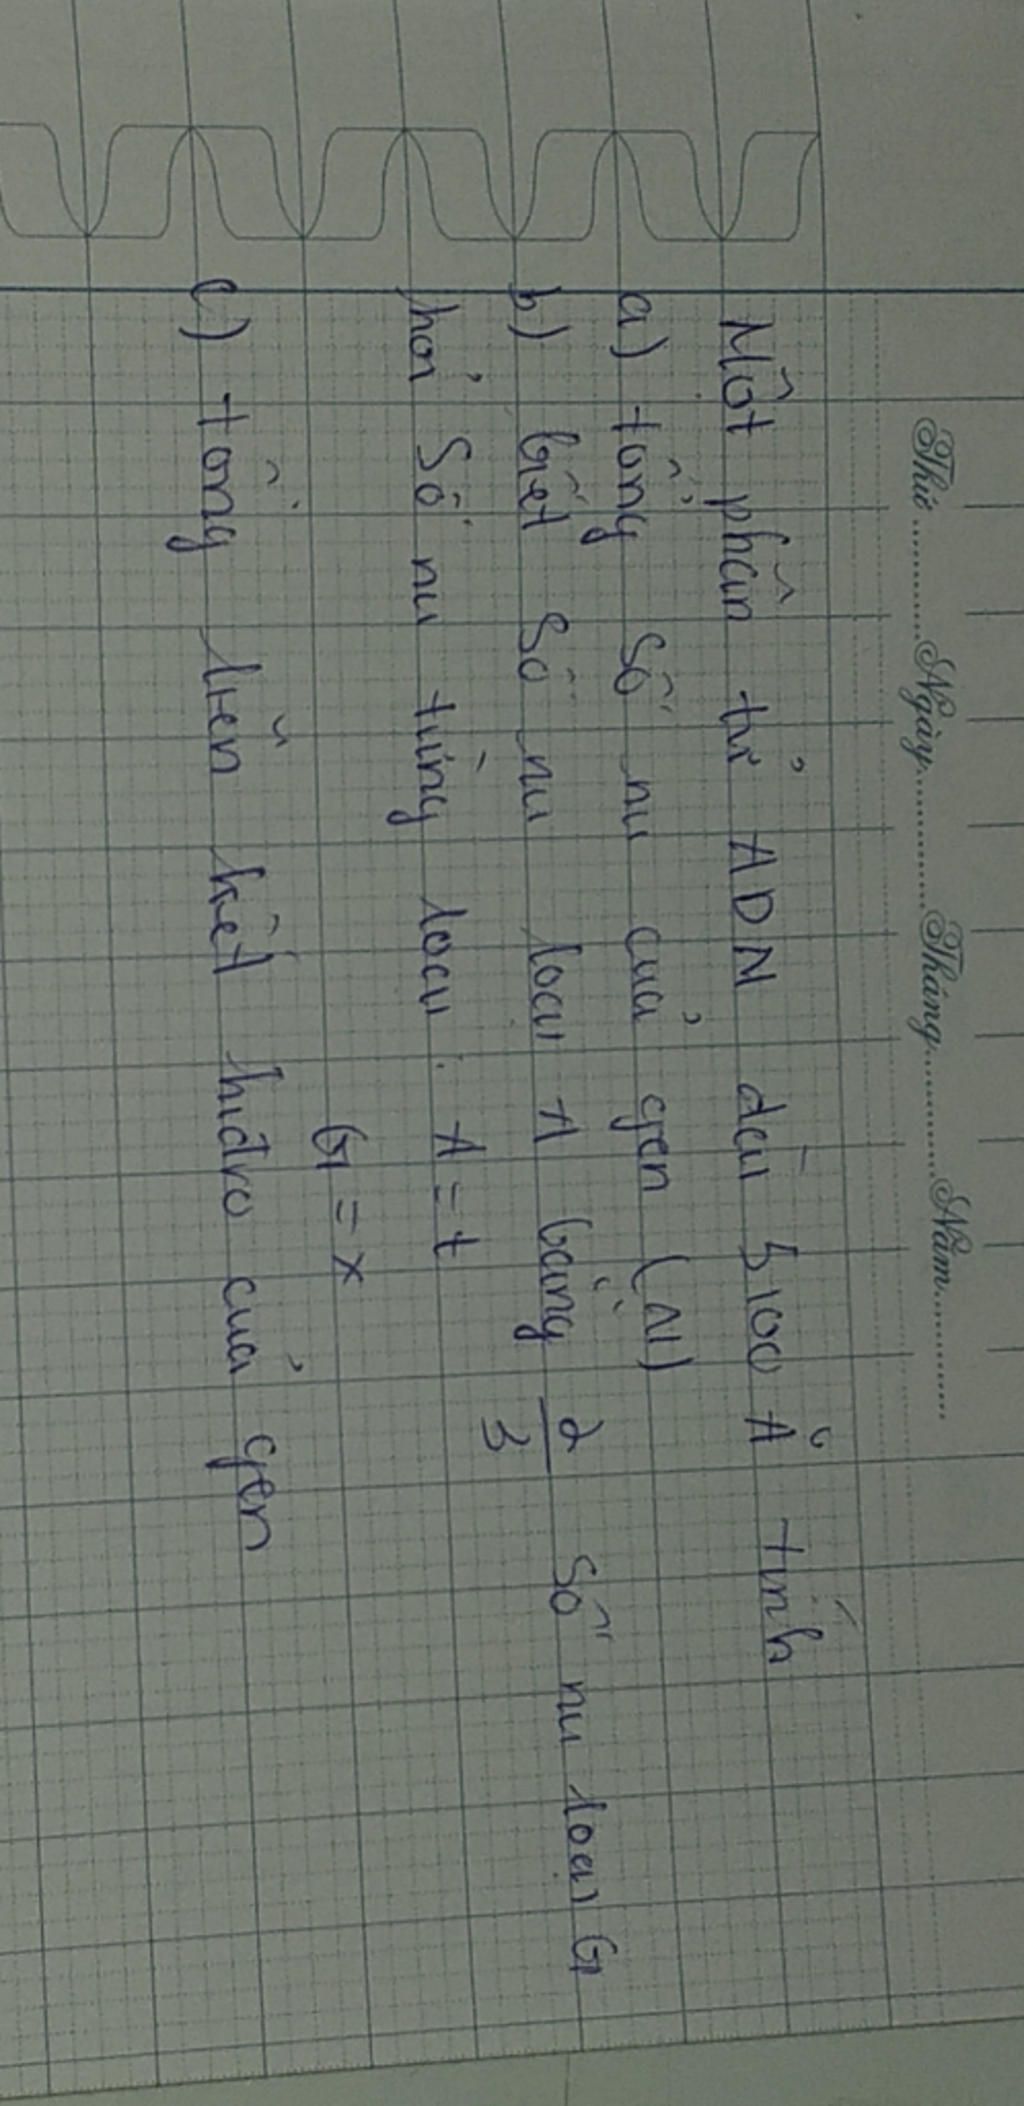 Thứ.............Ngày.............Tháng.............Năm.............
Một phân tử ADN dài 5100 Å tính
a) tổng số nu của gen (N)
b) biết số nu loại A bằng 2/3 số nu loại G
hỏi số nu từng loại : A = t
G = x
c) tổng liên kết hiđro của gen